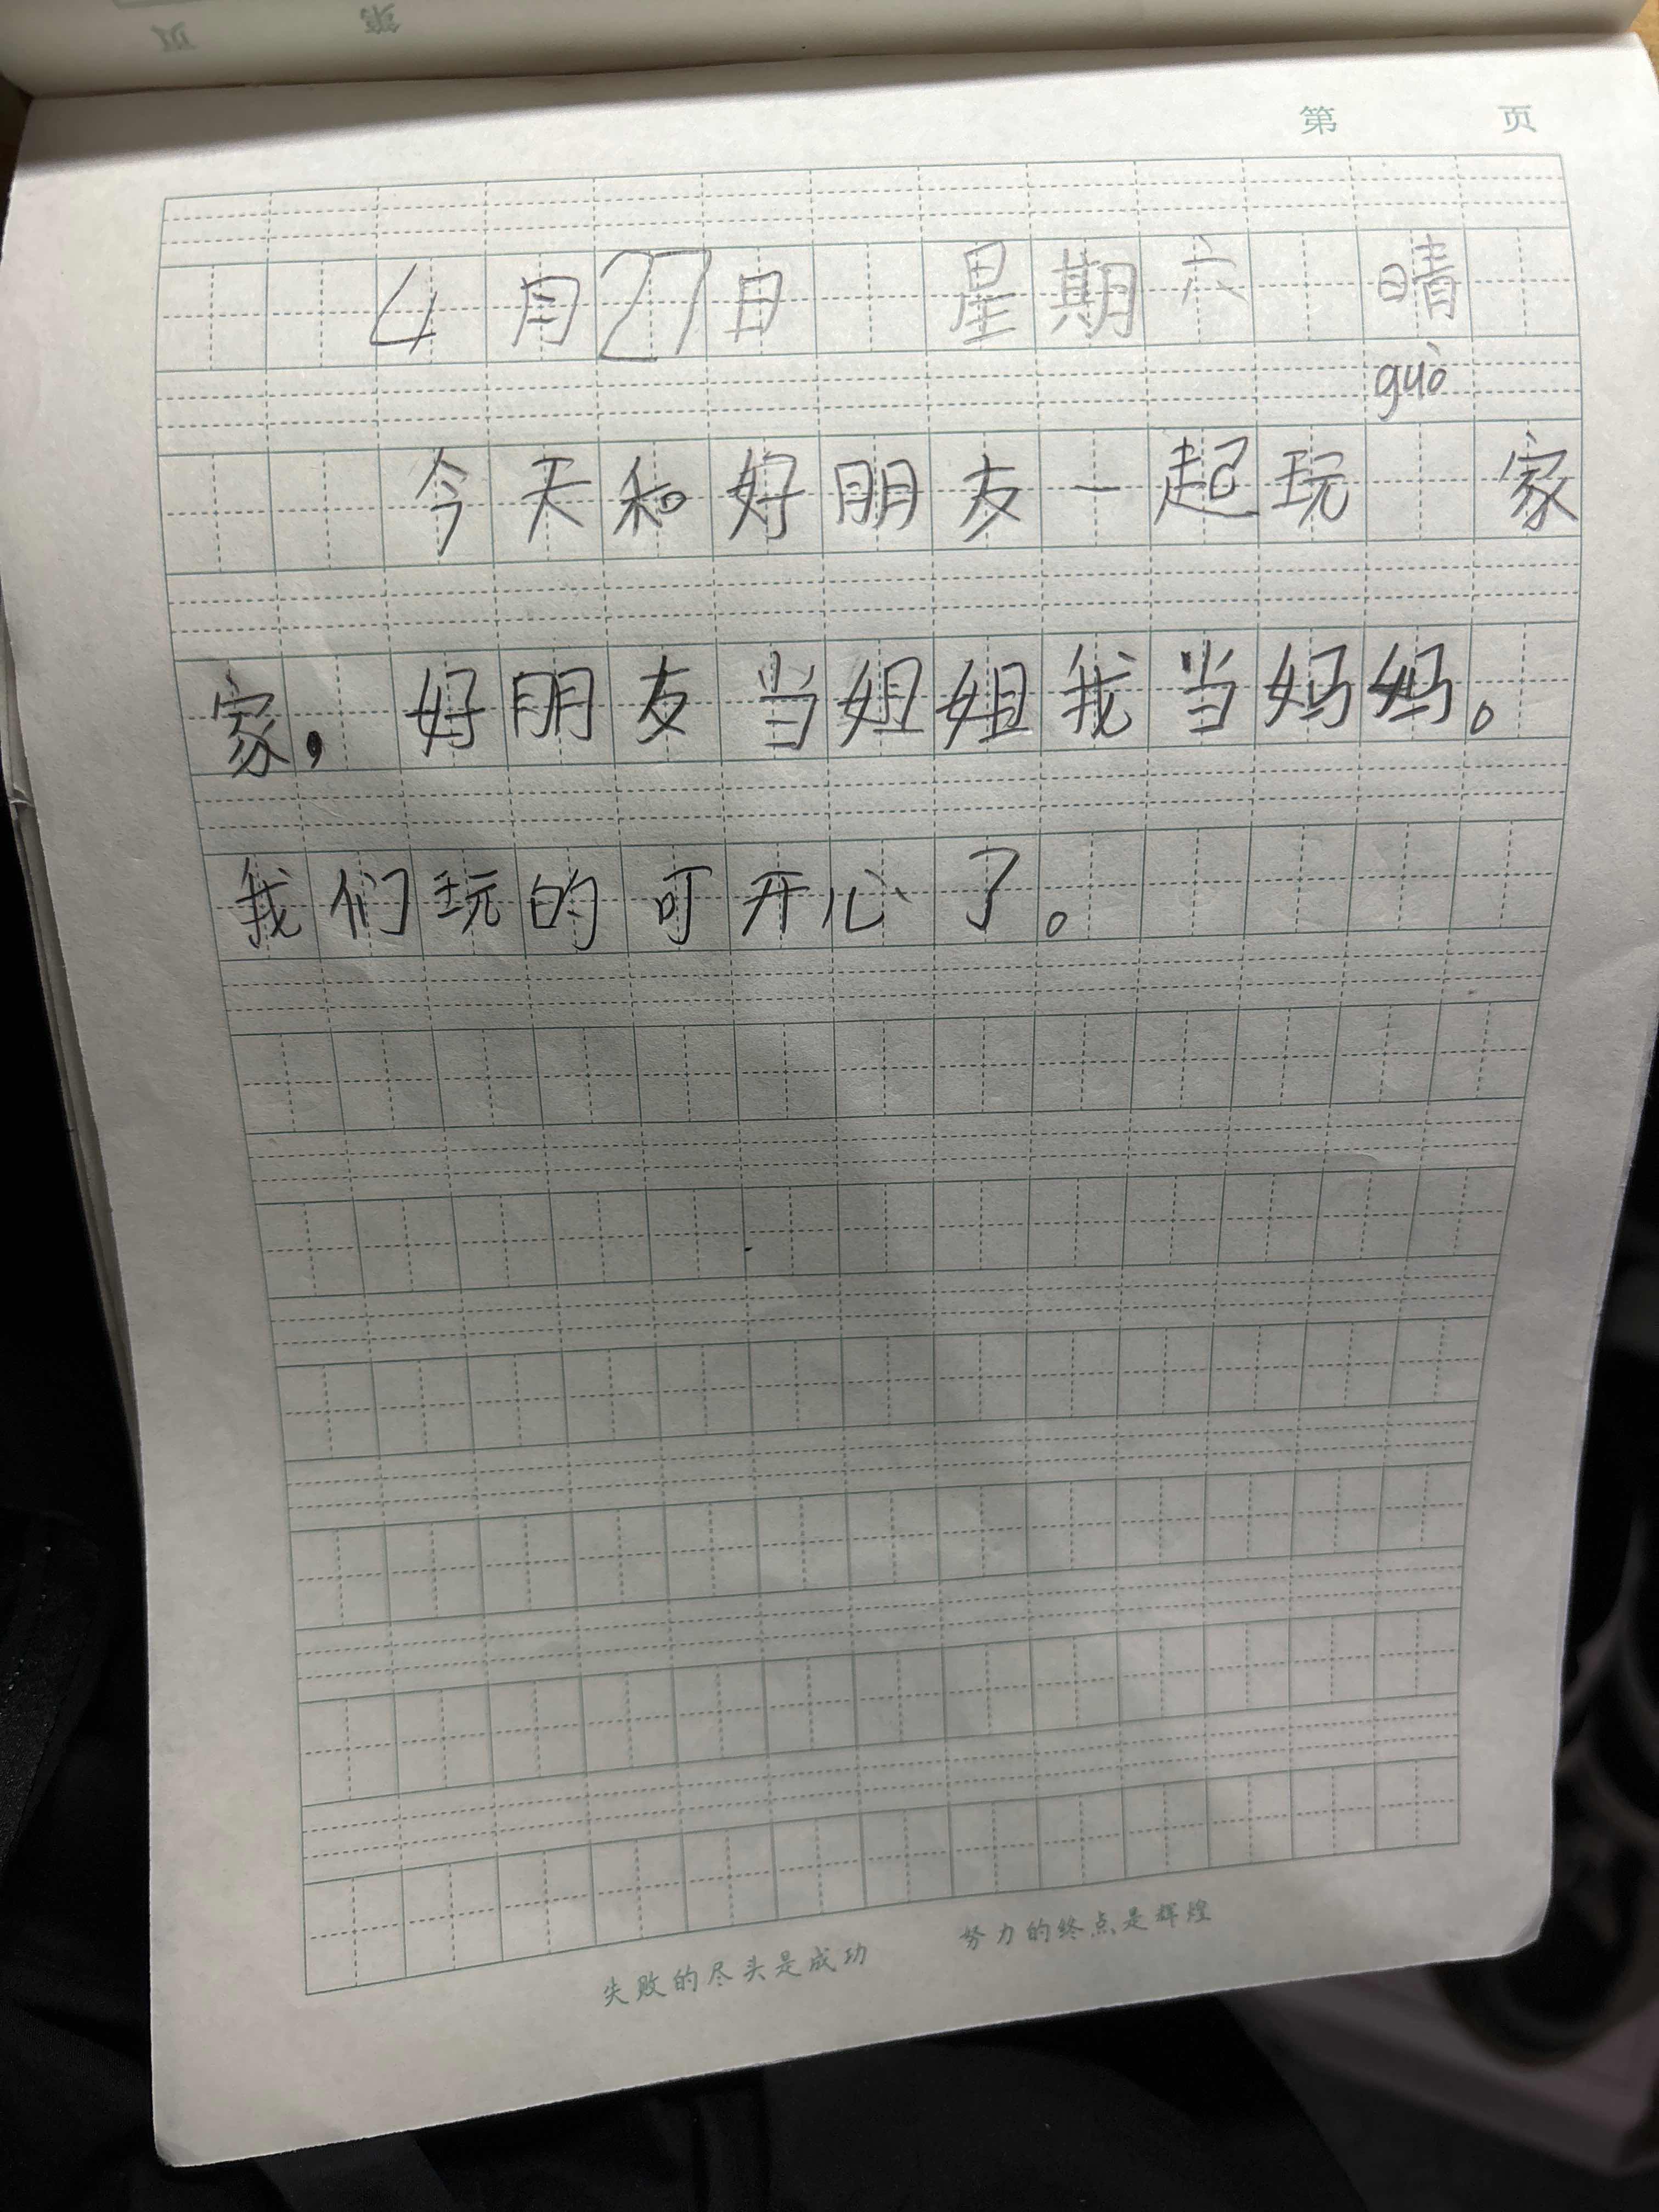 页 第
第 页
4月27日 星期六 晴
guò
今天和好朋友一起玩 家
家，好朋友当姐姐我当妈妈。
我们玩的可开心了。
失败的尽头是成功 努力的终点是辉煌